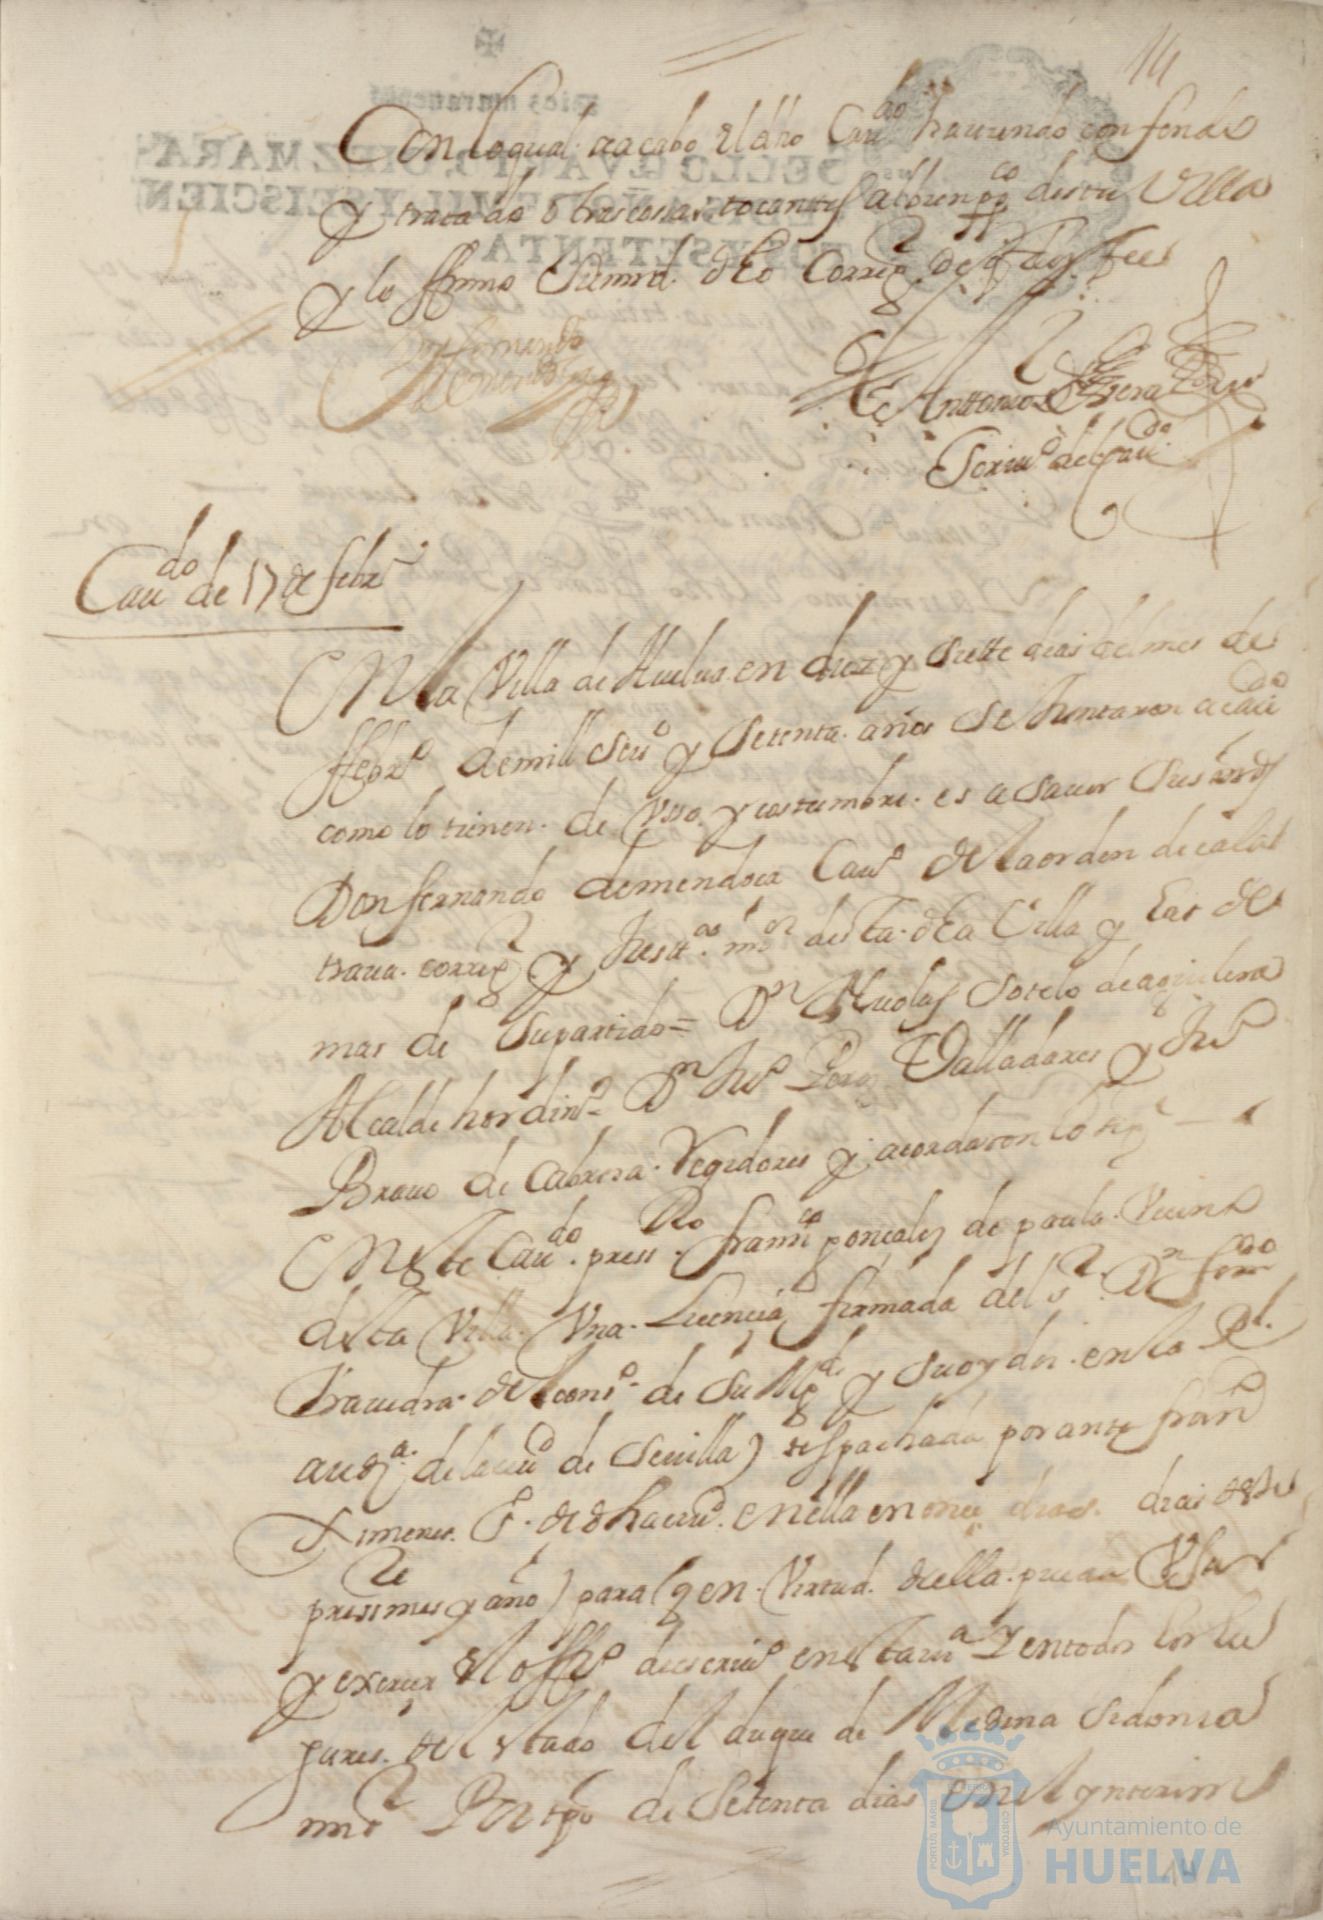 14
Con lo qual se acabo el dho Cavdo haviendo conferido
y tratado otras cossas tocantes al bien pco desta Villa
y lo firmo Su mrd. dho Corregr de q doy fee
Don fernando
de mendoza
Antonio Xptoval
Escrivo del Cavdo
Cavdo de 17 de febro
En la Villa de Huelva en diez y siette dias del mes de
ffebro de mill seisos y setenta años se Juntaron a cavdo
como lo tienen de Vsso y costumbre es a saver sus mrds
Don fernando de mendoça Cavro de la orden de cala
trava corregr y Justa mor desta dha Villa y las de
mas de su partido = Dn Nicolas Sotelo de aguilera
Alcalde hordino Dn Juo Perez Valladares y Juo
Bravo de Cabrera Regidores y acordaron lo sigte
En este Cavdo pressto franco gonçalez de paula Vecino
desta Villa Vna Licencia firmada del sr Dn ferndo
Saavedra del conso de Su Mgd y su oydor en la Rl
auda de la ciud de Sevilla) despachada por ante franco
Ximenes Eo de dha ciud en ella en onçe dias deste
presste mes y año) para q en Virtud della pueda Vsar
y exercer el offo de escrivo en esta va y en todos los lu
gares del estado del duque de Medina sidonia
mi sr Por tpo de setenta dias en el ynterim
PORTUS MARIS
CUSTODIA
Ayuntamiento de
HUELVA
14